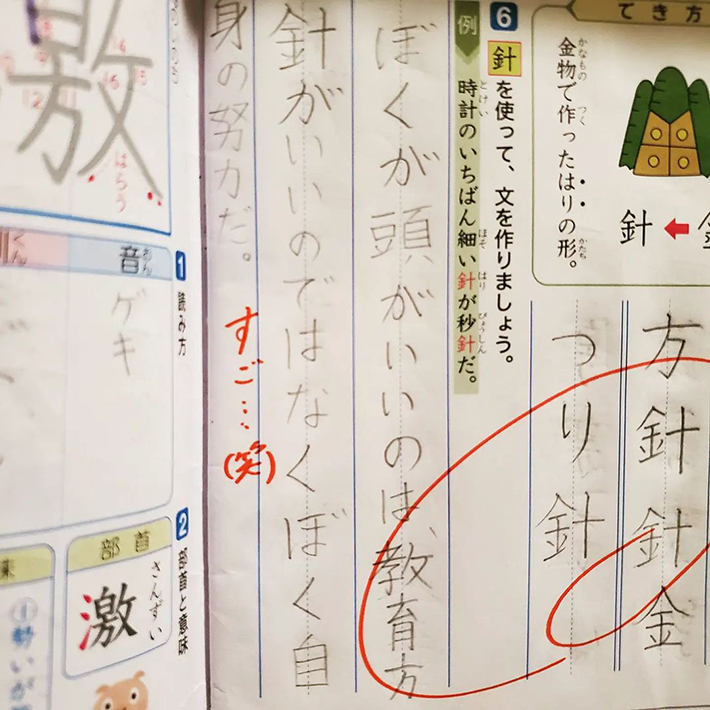 でき方
金物で作ったはりの形。
針 ← 金
方針 針金
つり針
6 針を使って、文を作りましょう。
例 時計のいちばん細い針が秒針だ。
ぼくが頭がいいのは、教育方
針がいいのではなくぼく自
身の努力だ。
すご…(笑)
1 読み方
音
ゲキ
2 部首と意味
部首
さんずい
激
①勢いが
激
はらう